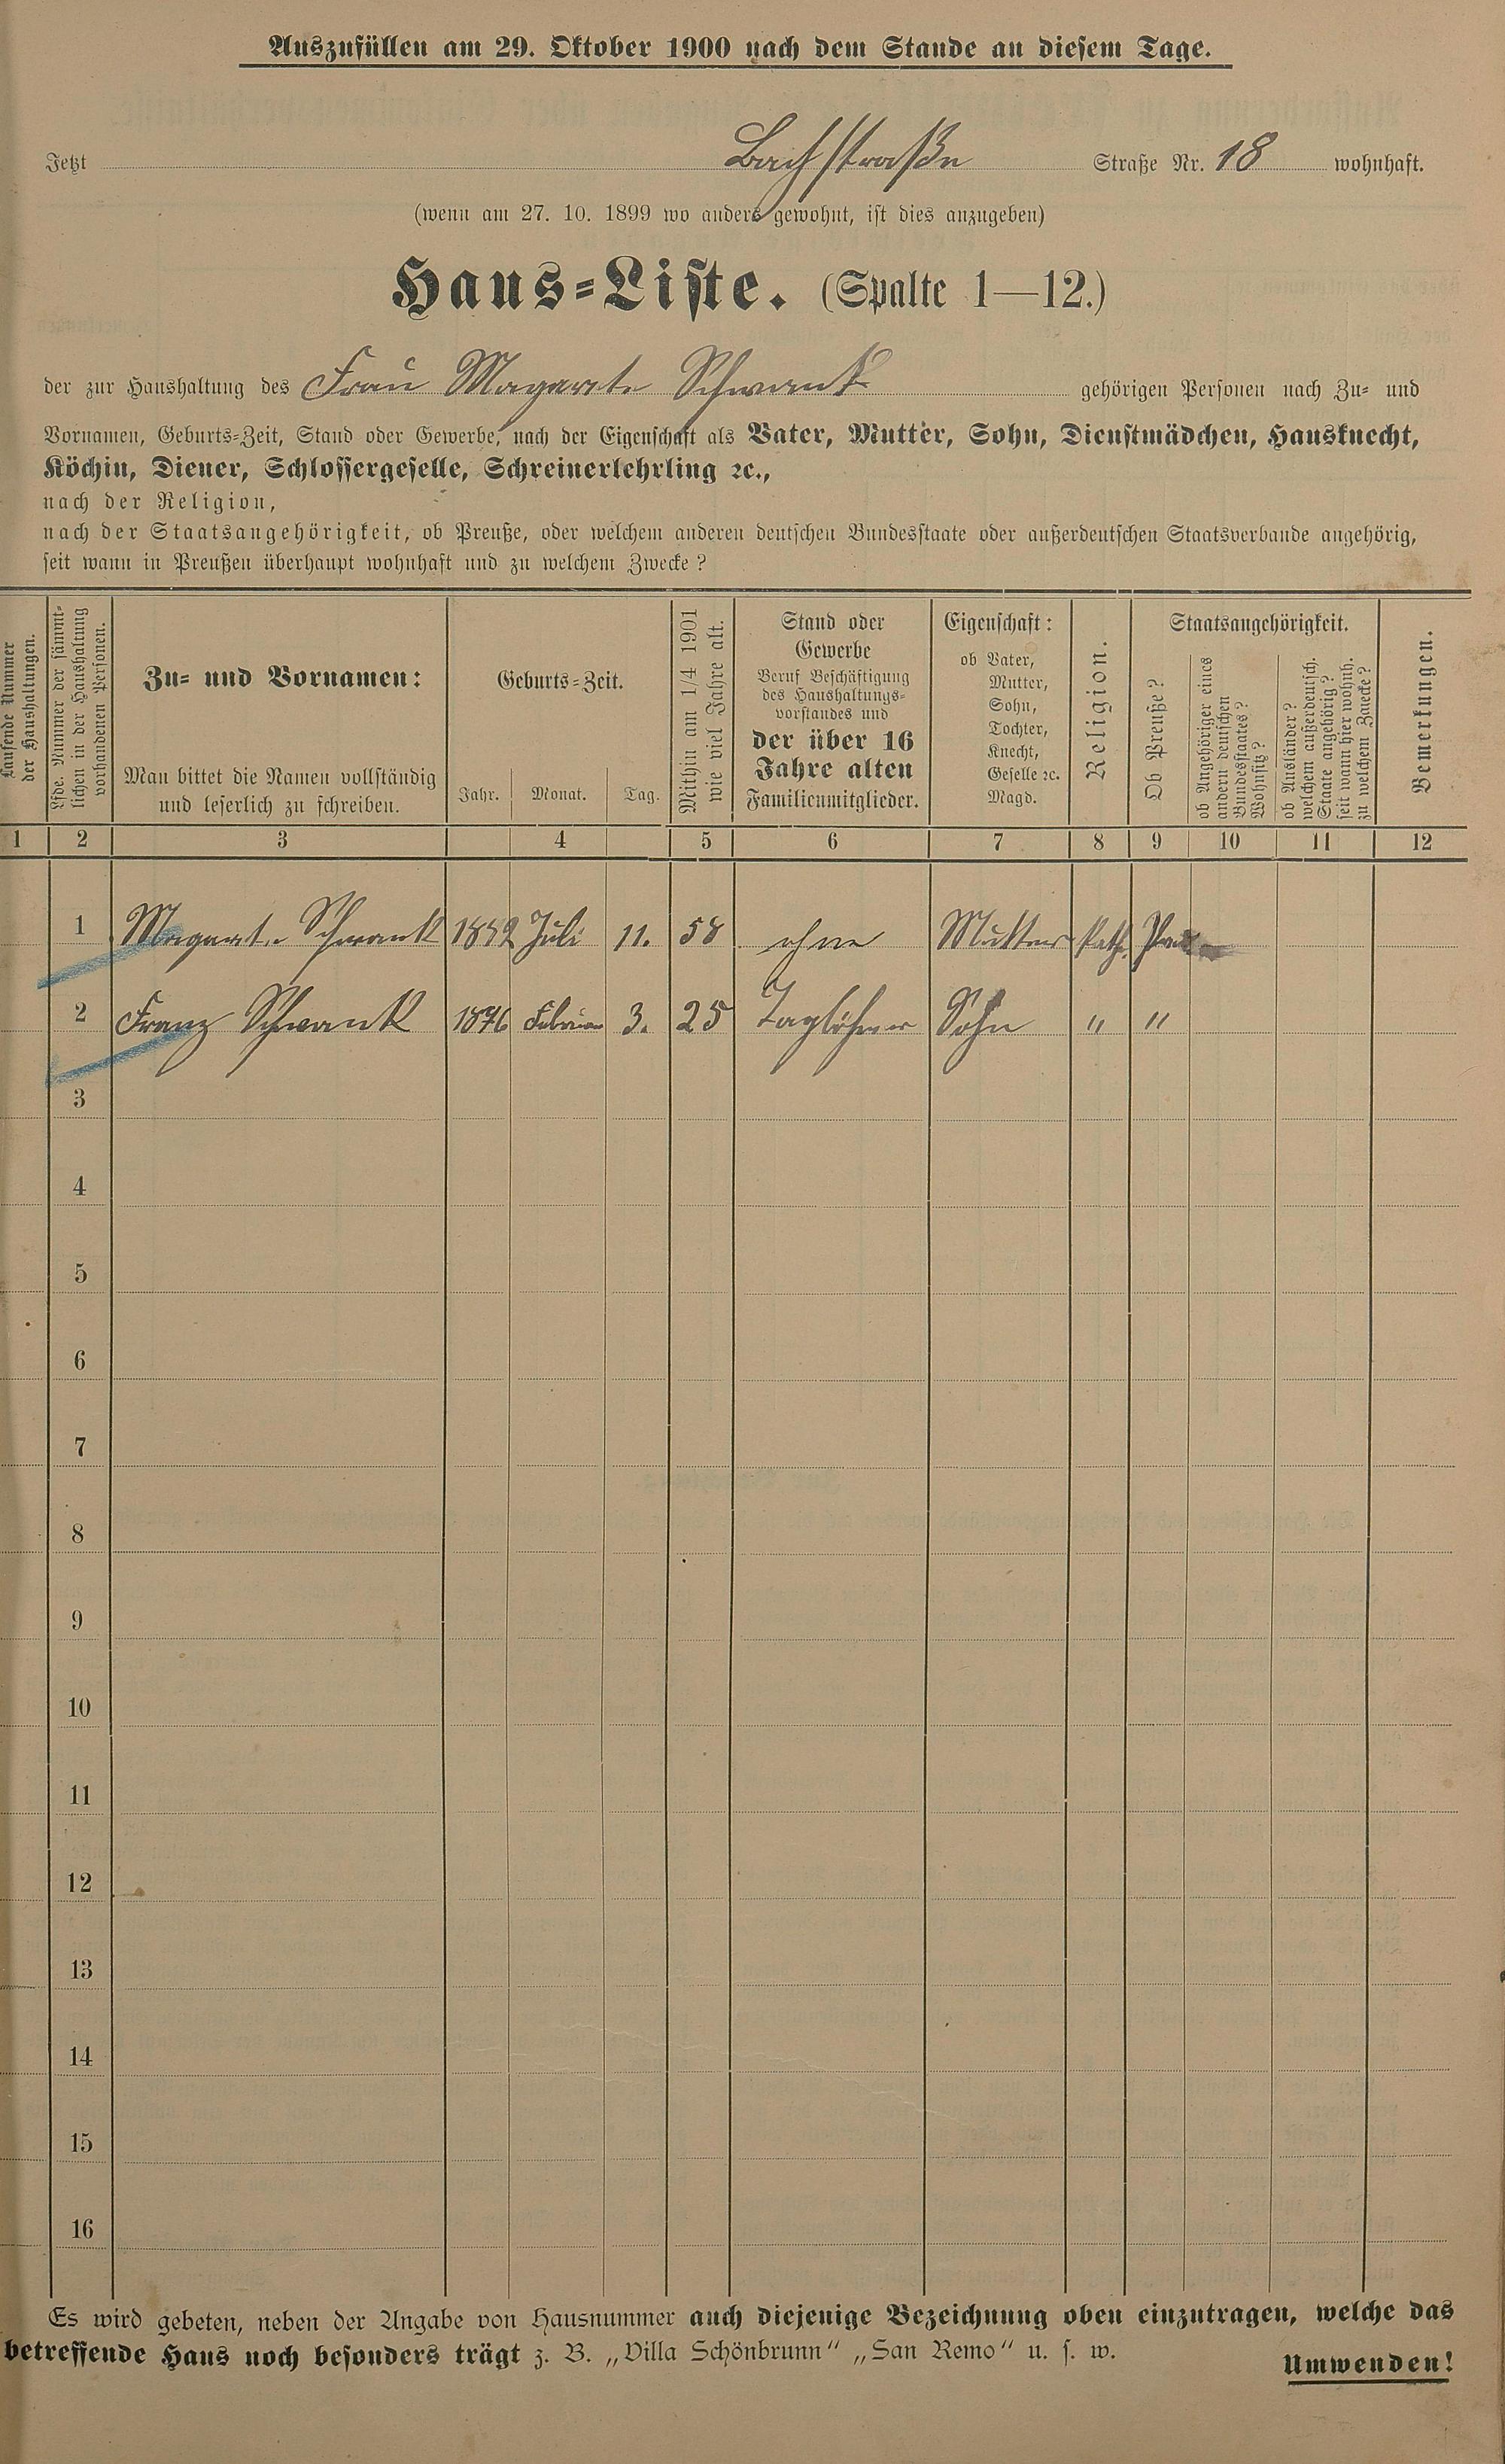 Auszufüllen am 29. Oktober 1900 nach dem Stande an diesem Tage.
Jetzt Bachstraße Straße Nr. 18 wohnhaft.
(wenn am 27. 10. 1899 wo anders gewohnt, ist dies anzugeben)
Haus-Liste. (Spalte 1—12.)
der zur Haushaltung des Frau Magarete Schwank gehörigen Personen nach Zu- und
Vornamen, Geburts-Zeit, Stand oder Gewerbe, nach der Eigenschaft als Vater, Mutter, Sohn, Dienstmädchen, Hausknecht,
Köchin, Diener, Schlossergeselle, Schreinerlehrling ꝛc.,
nach der Religion,
nach der Staatsangehörigkeit, ob Preuße, oder welchem anderen deutschen Bundesstaate oder außerdeutschen Staatsverbande angehörig,
seit wann in Preußen überhaupt wohnhaft und zu welchem Zwecke?
Laufende Nummer
der Haushaltungen.
Lfde. Nummer der sämmt-
lichen in der Haushaltung
vorhandenen Personen.
Zu- und Vornamen:
Man bittet die Namen vollständig
und leserlich zu schreiben.
Geburts-Zeit.
Jahr. Monat. Tag.
Mithin am 1/4 1901
wie viel Jahre alt.
Stand oder
Gewerbe
Beruf Beschäftigung
des Haushaltungs-
vorstandes und
der über 16
Jahre alten
Familienmitglieder.
Eigenschaft:
ob Vater,
Mutter,
Sohn,
Tochter,
Knecht,
Geselle ꝛc.
Magd.
Religion.
Staatsangehörigkeit.
Ob Preuße?
ob Angehöriger eines
andern deutschen
Bundesstaates?
Wohnsitz?
ob Ausländer?
welchem außerdeutsch.
Staate angehörig?
seit wann hier wohnh.
zu welchem Zwecke?
Bemerkungen.
1 2 3 4 5 6 7 8 9 10 11 12
1 Magaret. Schwank 1842 Juli 11. 58 ohne Mutter Kath.
2 Franz Schwank 1876 Februar 3. 25 Taglöhner Sohn " "
3
4
5
6
7
8
9
10
11
12
13
14
15
16
Es wird gebeten, neben der Angabe von Hausnummer auch diejenige Bezeichnung oben einzutragen, welche das
betreffende Haus noch besonders trägt z. B. „Villa Schönbrunn" „San Remo" u. s. w.
Umwenden!